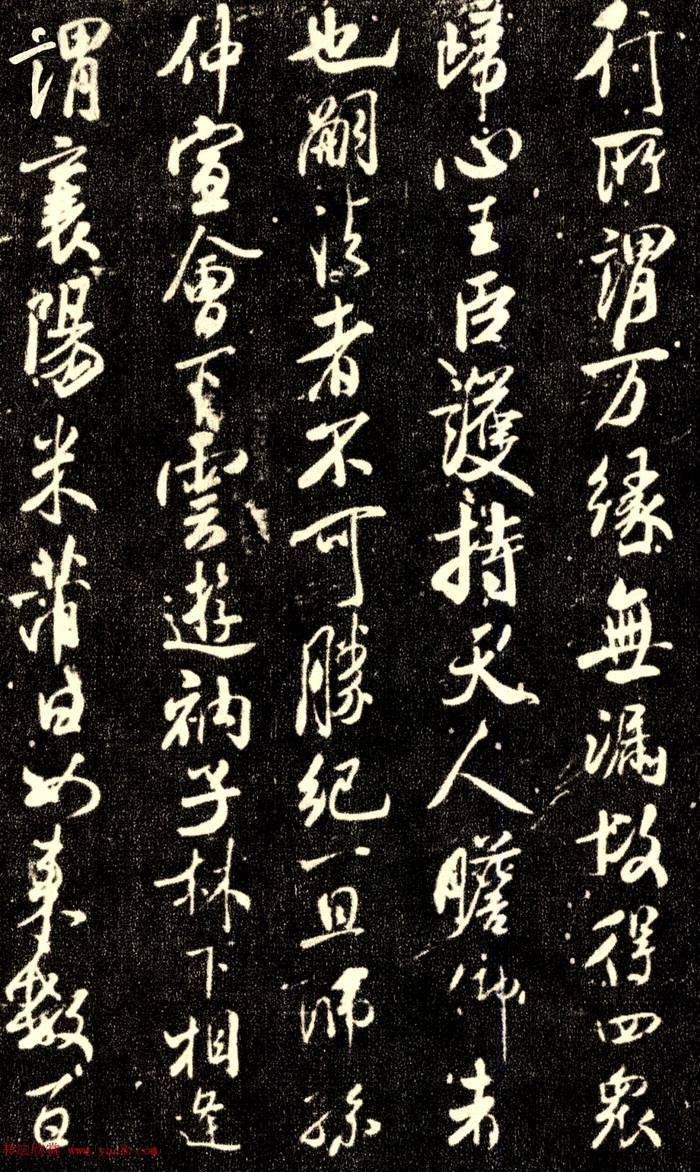 行所謂万緣無漏故得四衆
歸心王臣護持天人瞻仰者
也嗣法者不可勝紀一旦師孫
仲宣會下雲遊衲子林下相逢
謂襄陽米芾曰如來數百
书法欣赏 www.yac8.com